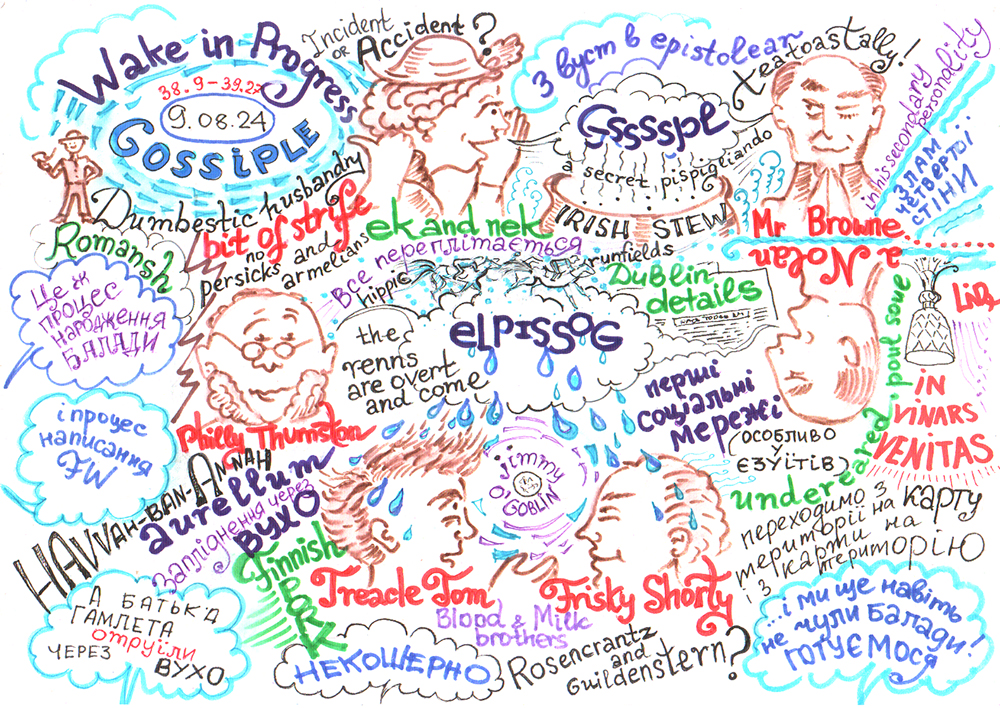 Wake in Progress
38.9-39.27
9.08.24
GOSSIPLE
Incident
OR Accident?
З вуст в epistolear
teatoastally!
Gsssspl
a secret pispigliando
IRISH STEW
in his secondary
personality
ЗЛАМ
ЧЕТВЕРТОЇ
СТІНИ
Dumbestic husbandry
bit of strife
no
persicks and
armelians
ek and nek
Mr Browne
a Nolan
Romansh
Все переплітається
hippic
runfields
Dublin
details
ЦЕ Ж
ПРОЦЕС
НАРОДЖЕННЯ
БАЛАДИ
the
renns
are overt
and come
elpissog
перші
соціальні
мережі
(ОСОБЛИВО
У
ЄЗУЇТІВ)
undereated, poul soue
IN
VINARS
VENITAS
Philly Thurnston
і процес
написання
FW
HAVVAH-BAN-ANNAH
aurellum
Запліднення через
ВУХО
jimmy
O'GOBLIN
переходимо з
території на карту
і з карти на
територію
Finnish
PORK
Treacle Tom
Frisky Shorty
Blood & Milk
brothers
А БАТЬК'А
ГАМЛЕТА
отруїли
ЧЕРЕЗ
ВУХО
НЕКОШЕРНО
Rosencrantz
and
Guildenstern?
...і ми ще навіть
не чули Балади!
ГОТУЄМОСЯ